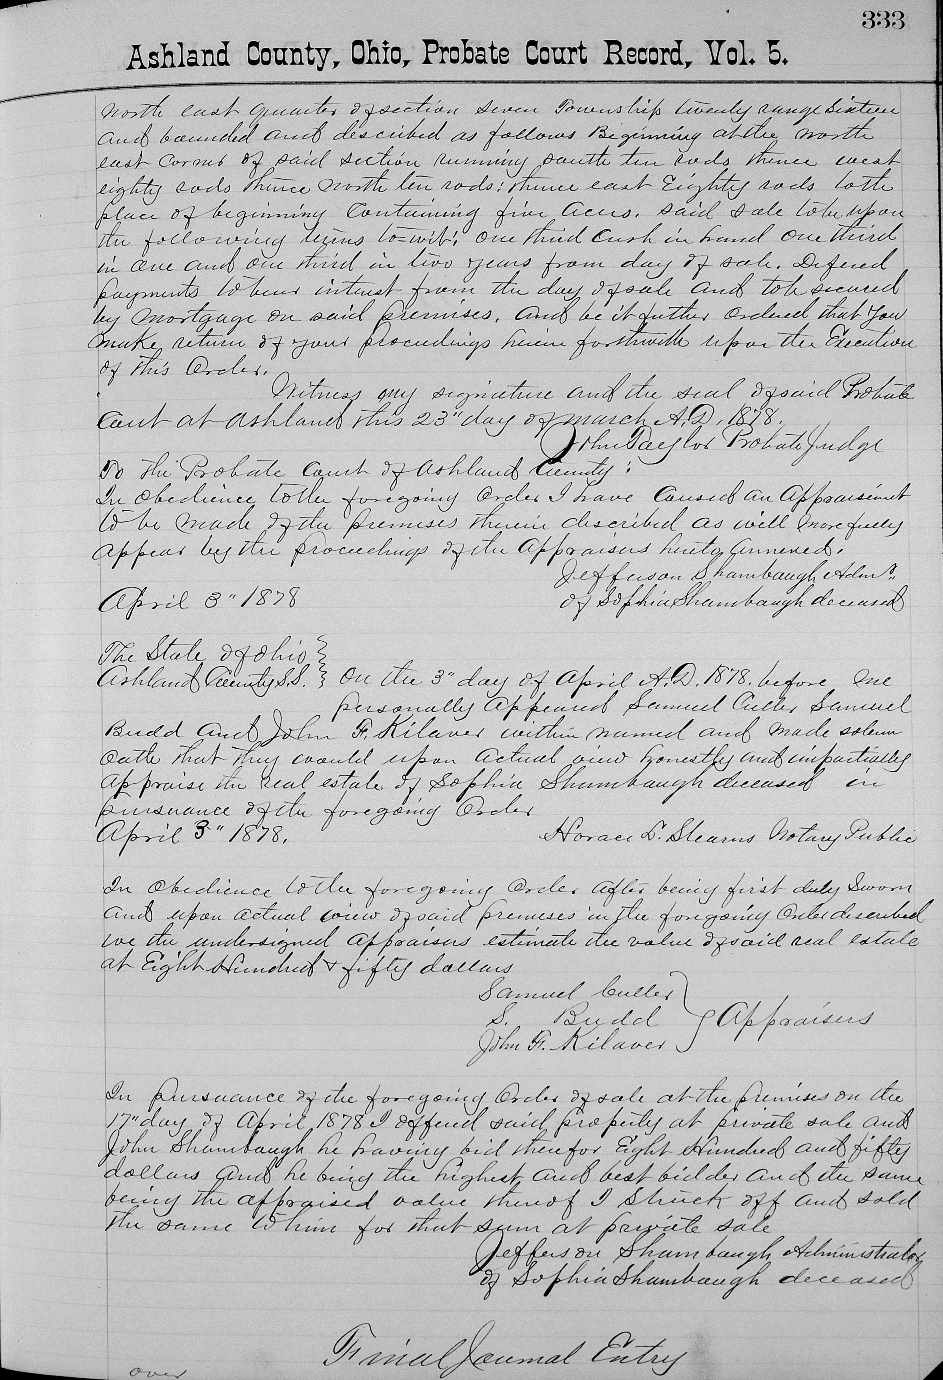 333
Ashland County, Ohio, Probate Court Record, Vol. 5.
North east quarter of section seven Township twenty range Sixteen
and bounded and described as follows Beginning at the north
east corner of said section running south ten rods thence west
eighty rods thence North ten rods; thence east Eighty rods to the
place of beginning Containing five acres. said sale to be upon
the following terms to=wit: one third cash in hand one third
in one and one third in two years from day of sale. Defered
payments to bear interest from the day of sale and to be secured
by mortgage on said premises. and be it further ordered that you
make return of your proceedings herein forthwith upon the Execution
of this Order.
Witness my signature and the seal of said Probate
Court at Ashland this 23" day of March A.D. 1878.
John Taylor Probate Judge
To the Probate Court of Ashland County:
In obedience to the foregoing Order I have Caused an Appraisement
to be made of the premises therein described as will more fully
appear by the proceedings of the Appraisers hereto annexed.
Jefferson Shambaugh Admr.
April 3" 1878 of Sophia Shambaugh deceased
The State of Ohio
Ashland County S.S. On the 3" day of April A.D. 1878. before me
personally appeared Samuel Culler Samuel
Budd and John F. Kilaver within named and made solemn
oath that they would upon actual view honestly and impartially
appraise the real estate of Sophia Shambaugh deceased in
pursuance of the foregoing Order
April 3" 1878. Horace L. Stearns Notary Public
In obedience to the foregoing Order after being first duly Sworn
and upon actual view of said premises in the foregoing Order described
we the undersigned appraisers estimate the value of said real estate
at Eight Hundred & fifty dollars
Samuel Culler
S. Budd Appraisers
John F. Kilaver
In pursuance of the foregoing Order of sale at the premises on the
17" day of April 1878 I offered said property at private sale and
John Shambaugh he having bid therefor Eight Hundred and fifty
dollars and he being the highest and best bidder and the same
being the appraised value thereof I Struck off and sold
the same to him for that sum at private sale
Jefferson Shambaugh Administrator
of Sophia Shambaugh deceased
Final Journal Entry
over